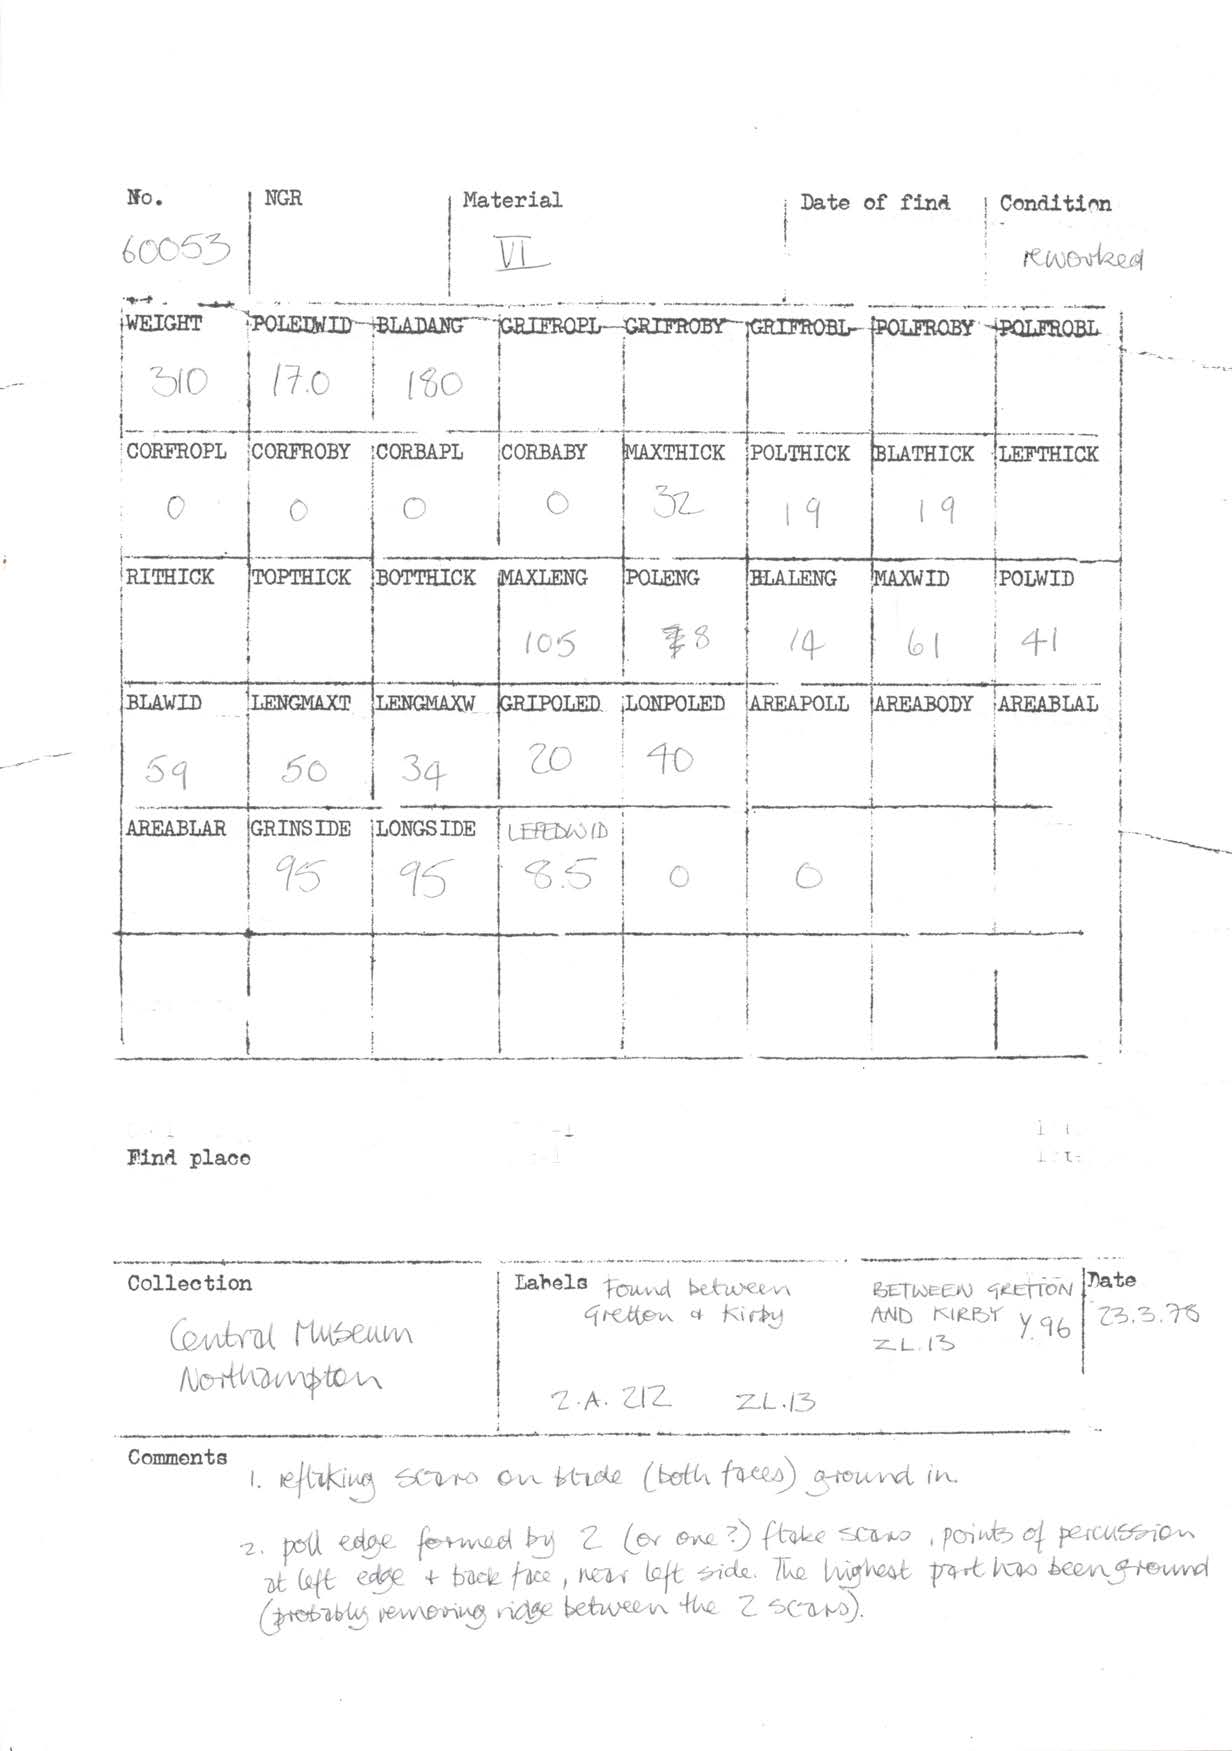 No. NGR Material Date of find Condition
60053 VI reworked
WEIGHT POLEDWID BLADANG GRIFROPL GRIFROBY GRIFROBL POLFROBY POLFROBL
310 17.0 180
CORFROPL CORFROBY CORBAPL CORBABY MAXTHICK POLTHICK BLATHICK LEFTHICK
0 0 0 0 32 19 19
RITHICK TOPTHICK BOTTHICK MAXLENG POLENG BLALENG MAXWID POLWID
105 8 14 61 41
BLAWID LENGMAXT LENGMAXW GRIPOLED LONPOLED AREAPOLL AREABODY AREABLAL
59 50 34 20 40
AREABLAR GRINSIDE LONGSIDE LEFEDWID
95 95 8.5 0 0
Find place
Collection
Central Museum
Northampton
Labels Found between
Gretton & Kirby
BETWEEN GRETTON
AND KIRBY Y.96
ZL.13
2.A. 212 ZL.13
Date
23.3.78
Comments
1. reflaking scars on blade (both faces) ground in.
2. poll edge formed by 2 (or one?) flake scars, points of percussion
at left edge + back face, near left side. The highest part has been ground
(probably removing ridge between the 2 scars).